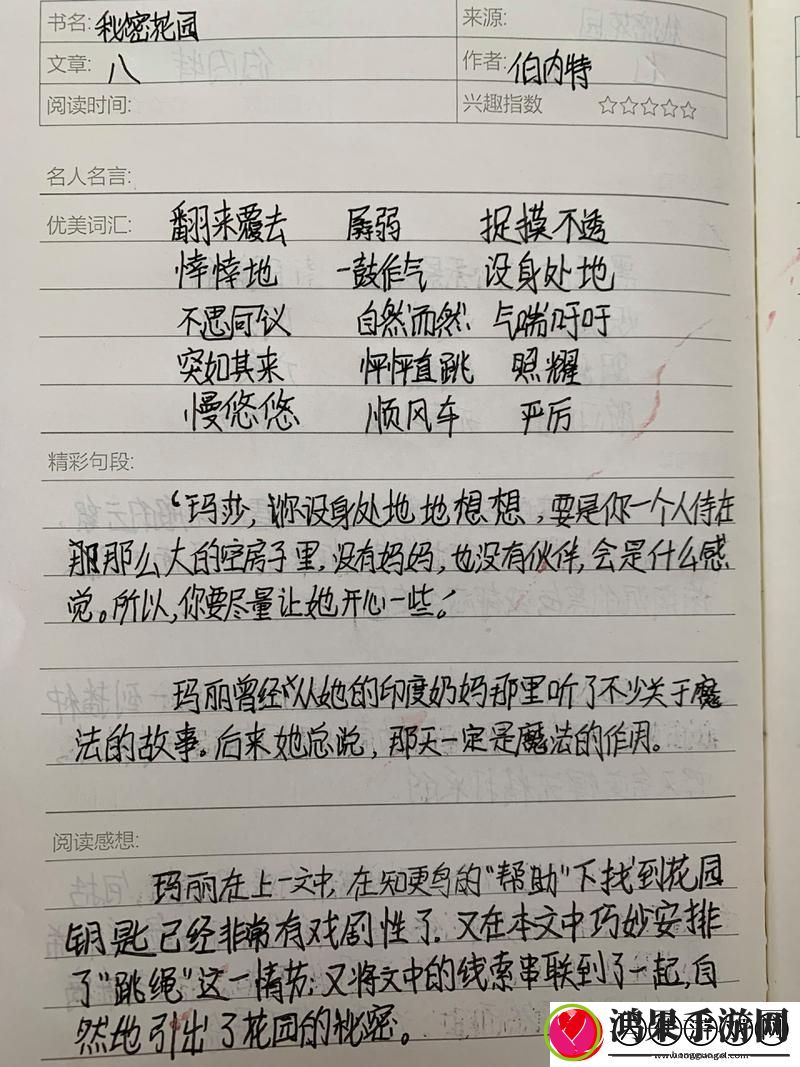 书名: 秘密花园 来源:
文章: 八 作者: 伯内特
阅读时间: 兴趣指数 ☆☆☆☆☆
名人名言:
优美词汇: 翻来覆去 孱弱 捉摸不透
悻悻地 一鼓作气 设身处地
不思议 自然而然 气喘吁吁
突如其来 怦怦直跳 照耀
慢悠悠 顺风车 严厉
精彩句段:
“玛莎,你设身处地地想想,要是你一个人待在
那那么大的空房子里,没有妈妈,也没有伙伴,会是什么感
觉。所以,你要尽量让她开心一些!
玛丽曾经从她的印度奶妈那里听了不少关于魔
法的故事。后来她总说,那天一定是魔法的作用。
阅读感想:
玛丽在上一文中,在知更鸟的“帮助”下找到花园
钥匙已经非常有戏剧性了.又在本文中巧妙安排
了“跳绳”这一情节;又将文中的线索串联到了一起,自
然地引出了花园的秘密。
鸿果手游网